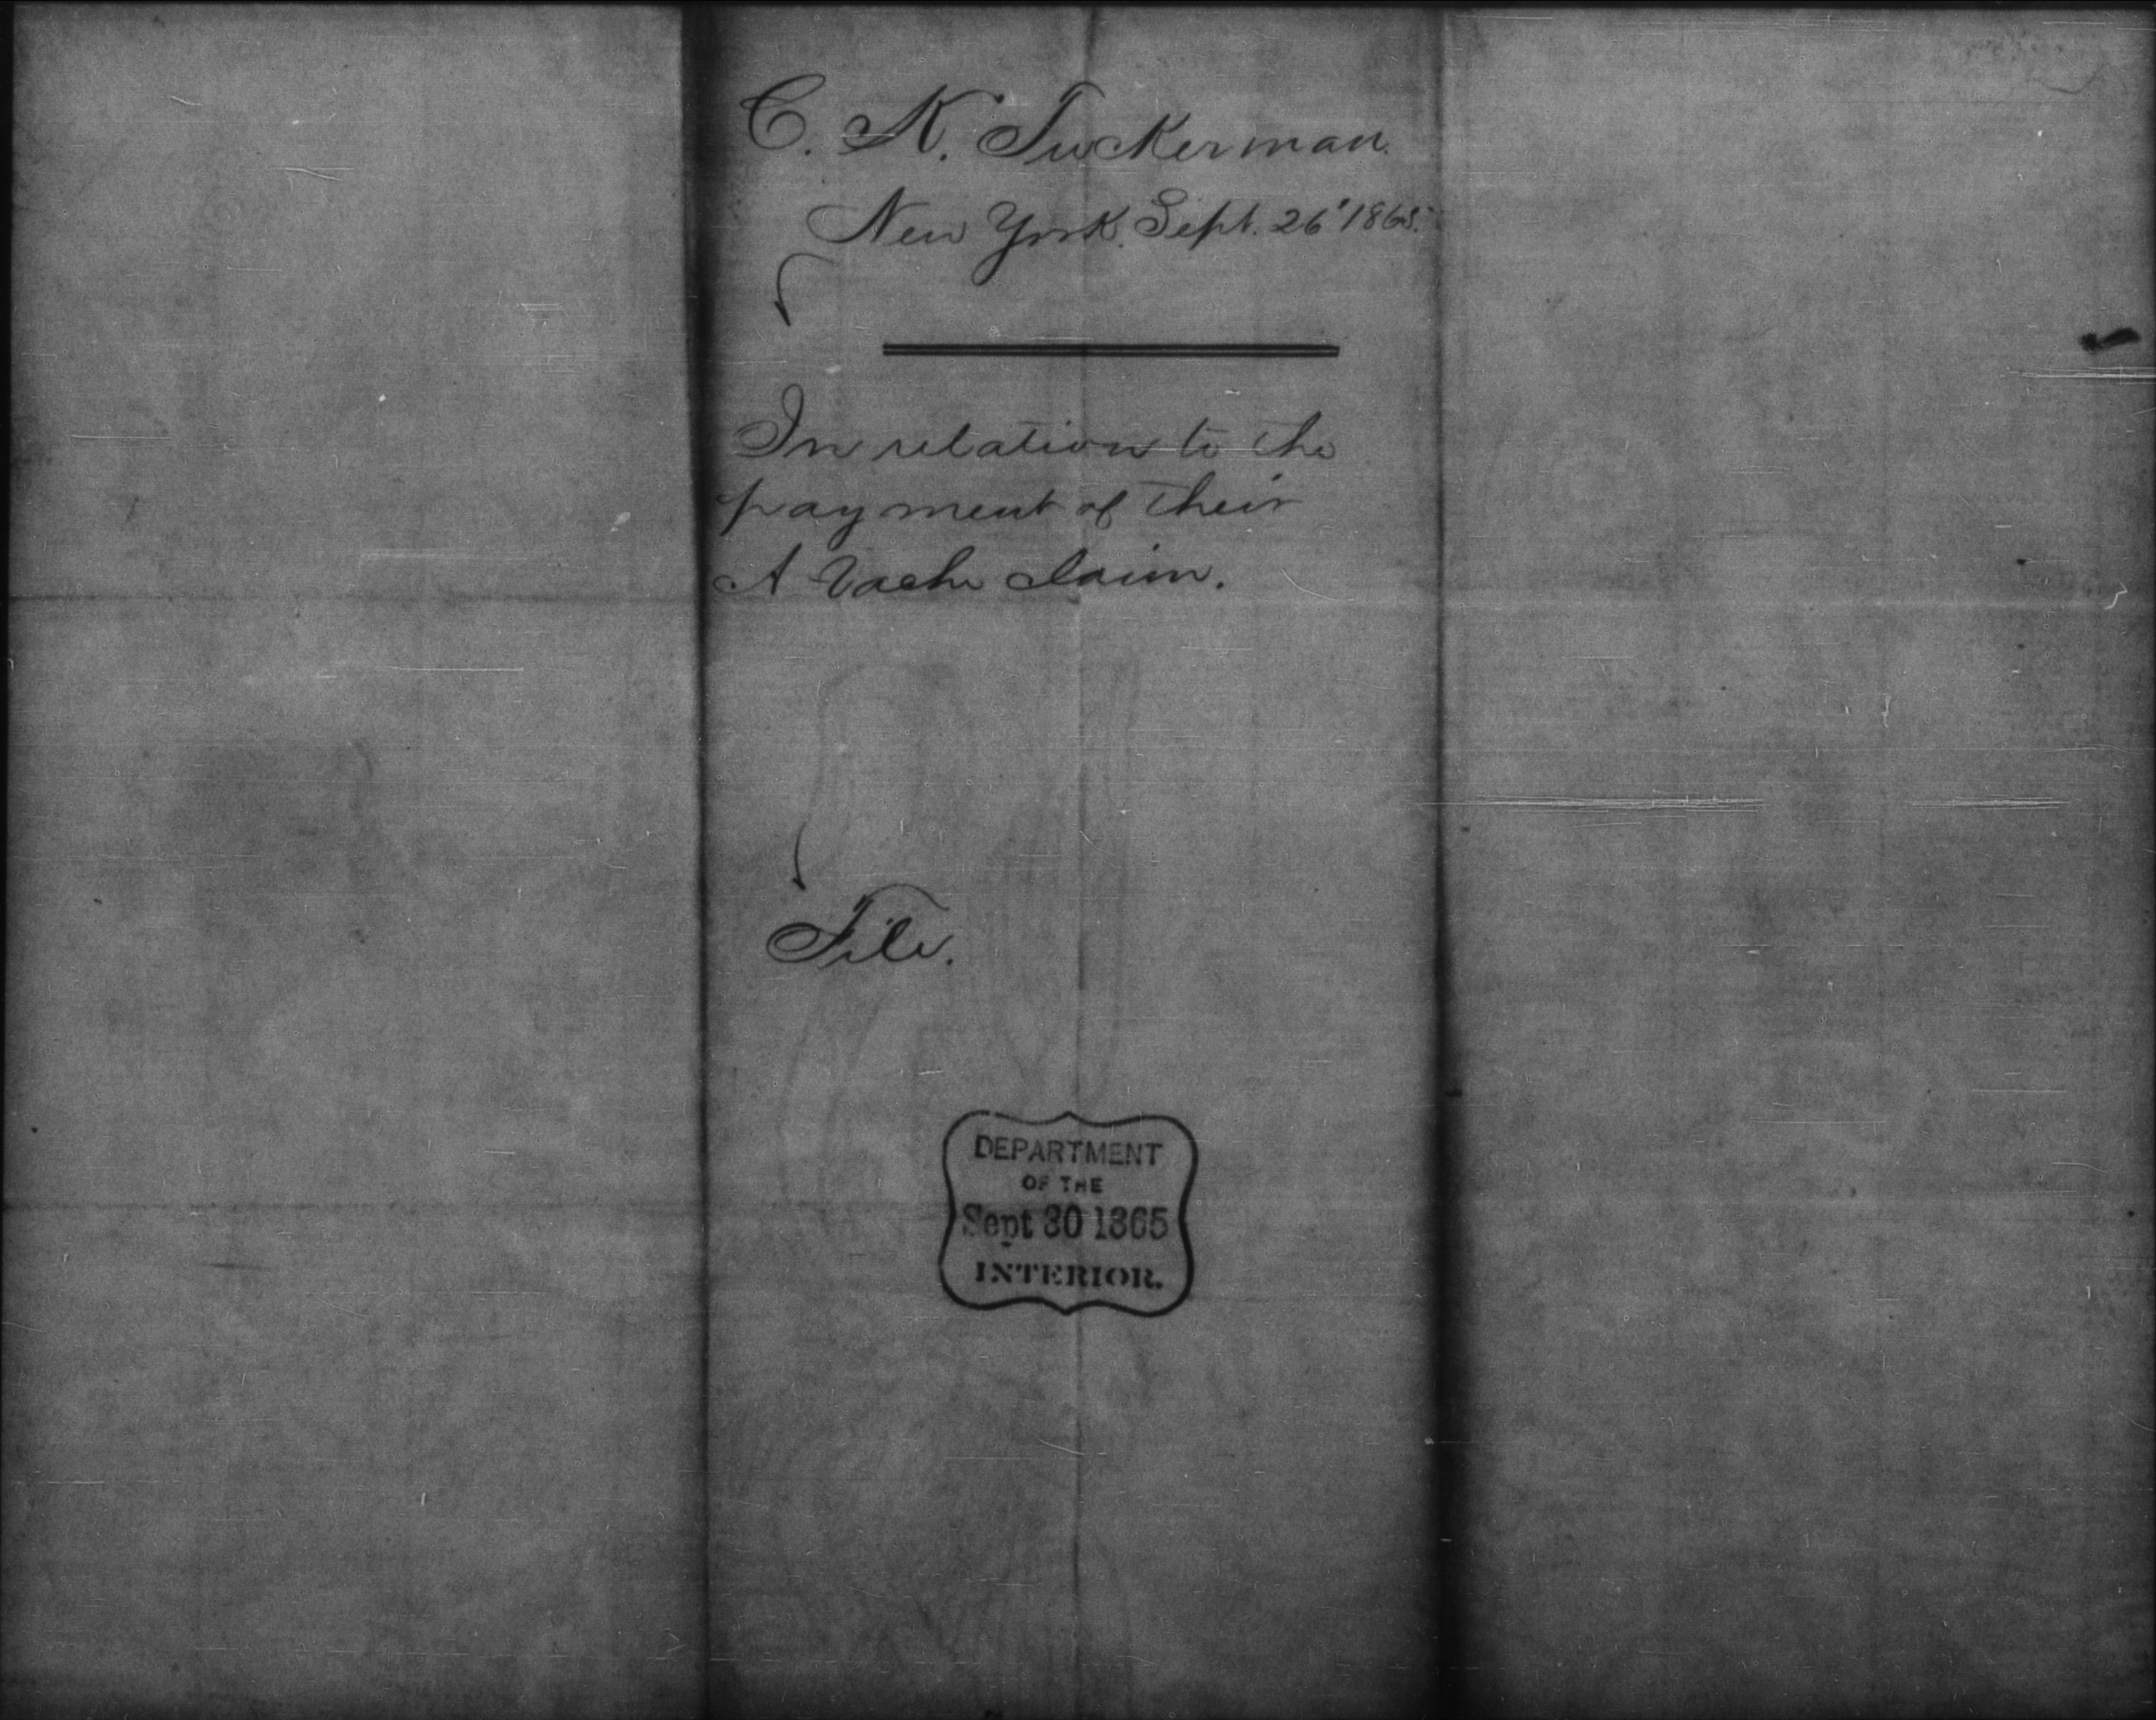 C. K. Tuckerman.
New York. Sept. 26" 1865.
In relation to the
payment of their
A Vache claim.
File.
DEPARTMENT
OF THE
Sept 30 1865
INTERIOR.